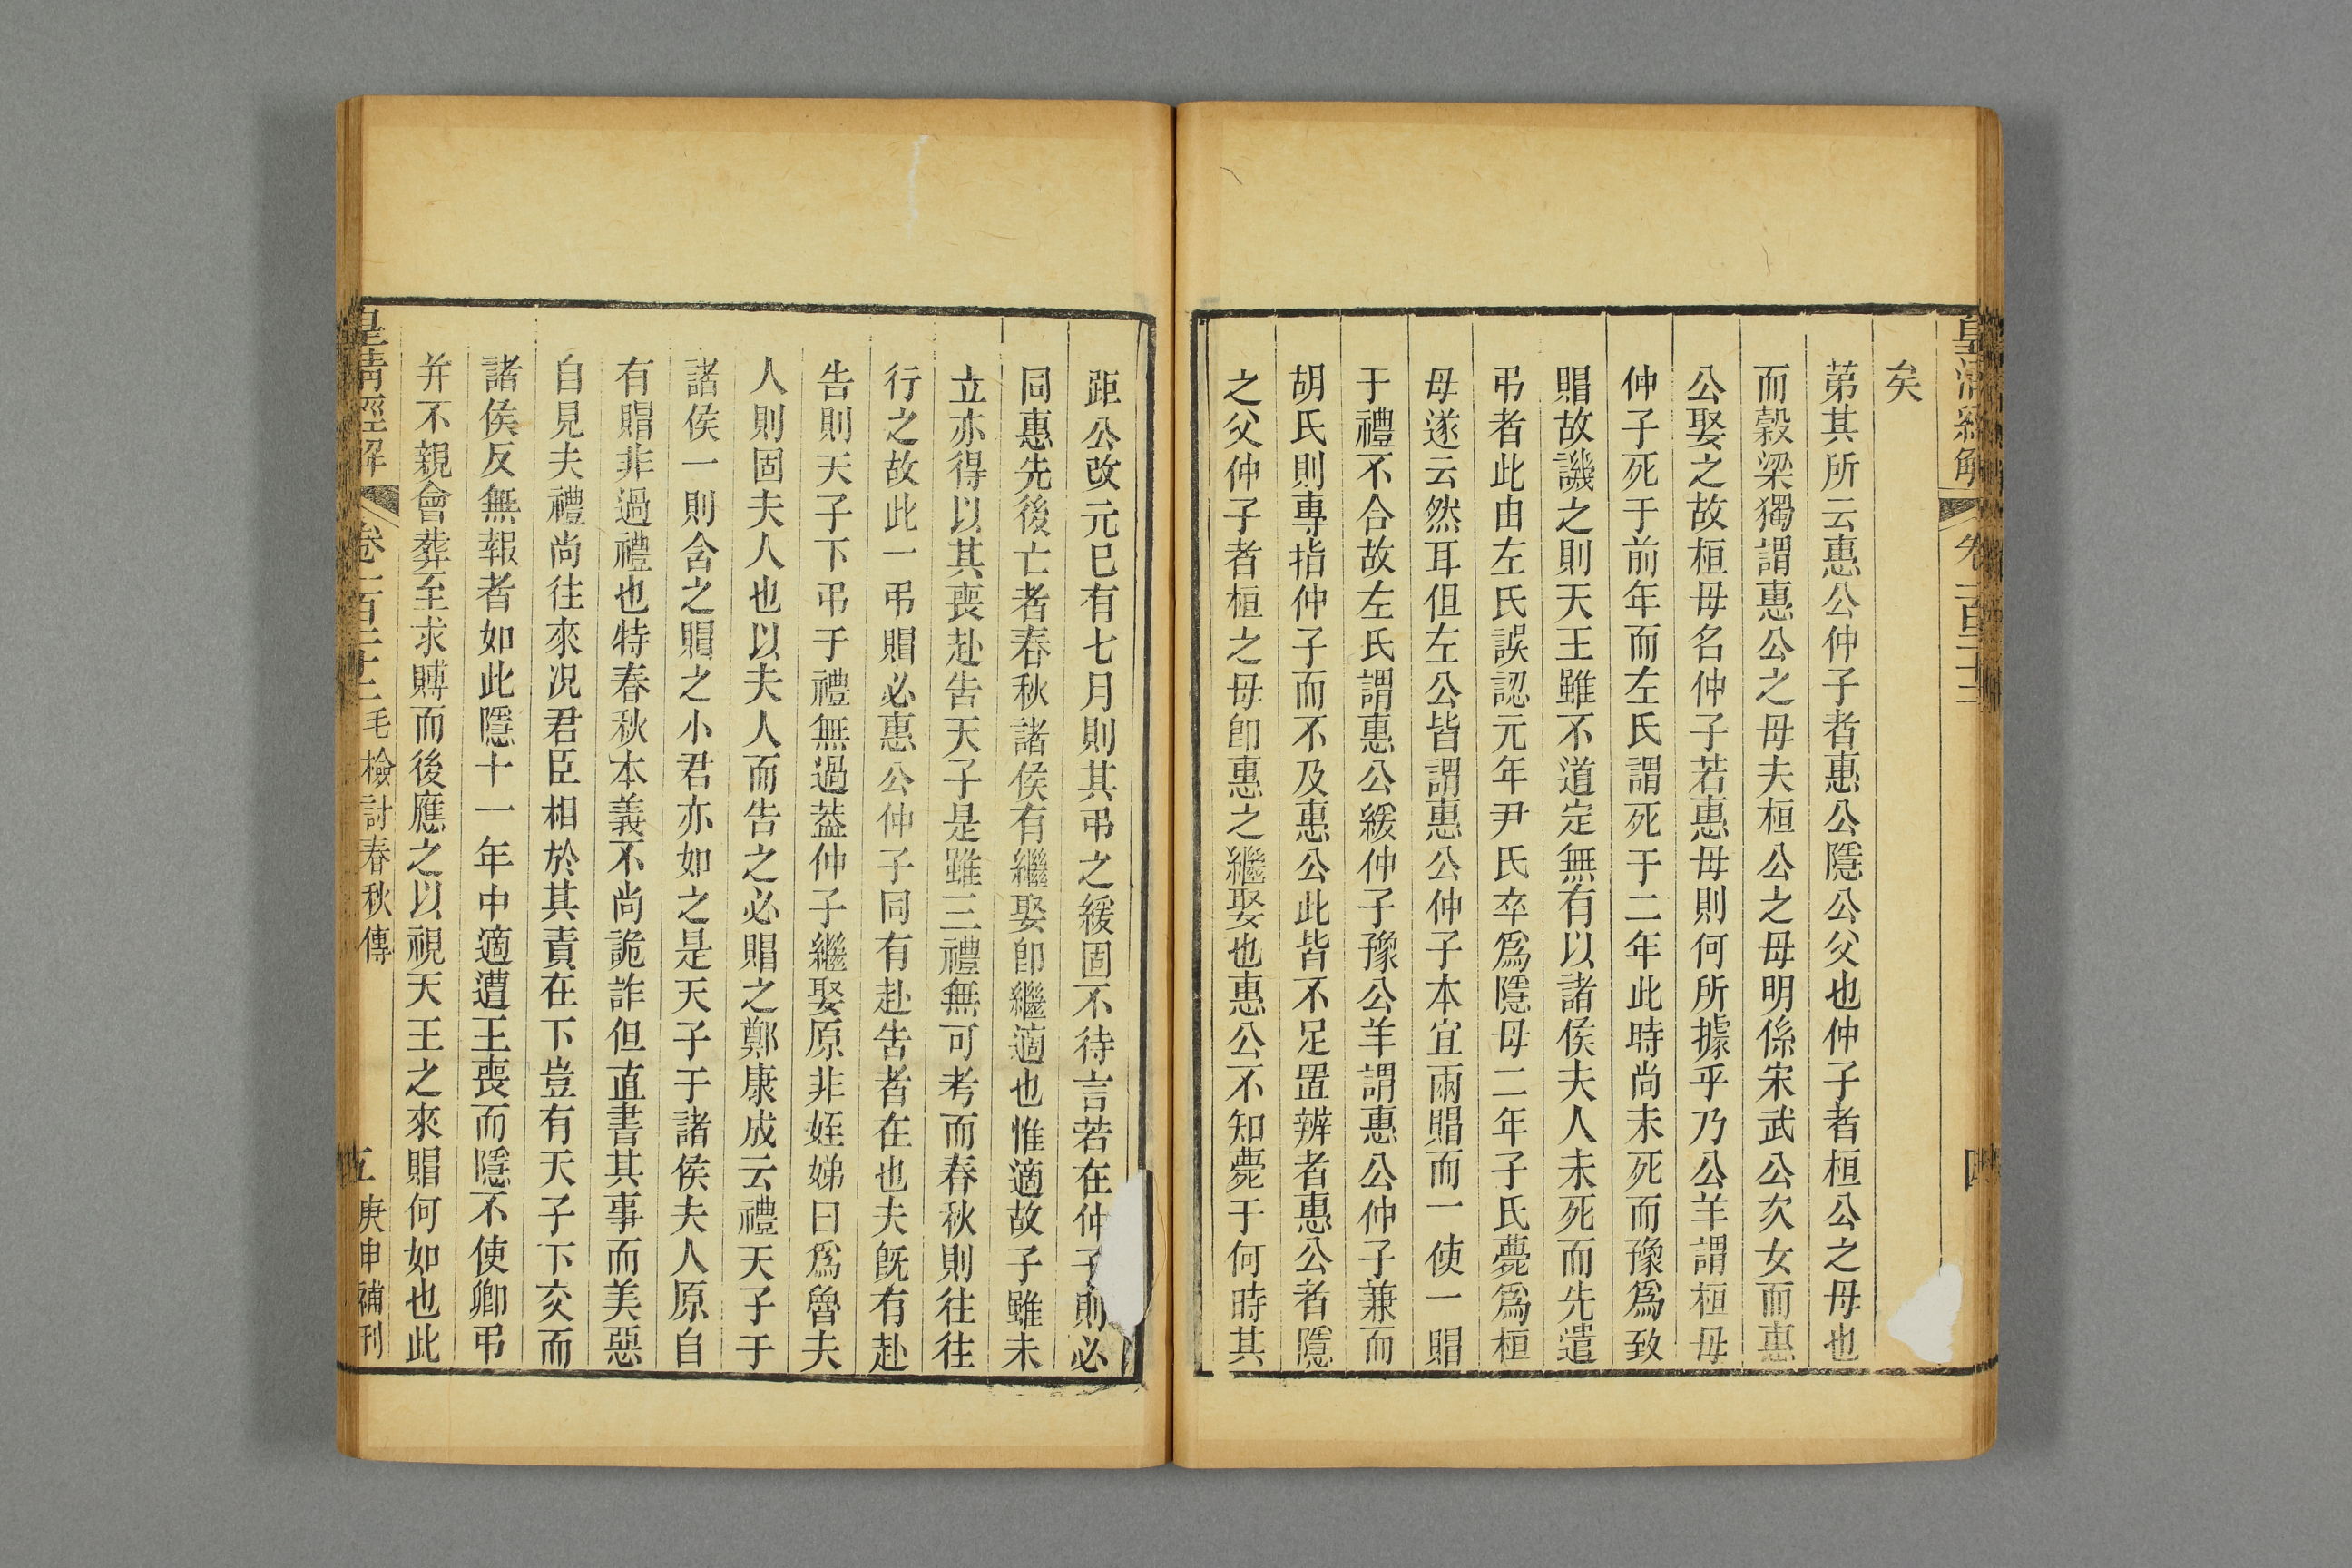 皇清經解 卷一百二十二 四
矣
苐其所云惠公仲子者惠公隱公父也仲子者桓公之母也
而穀梁獨謂惠公之母夫桓公之母明係宋武公次女而惠
公娶之故桓母名仲子若惠母則何所據乎乃公羊謂桓母
仲子死于前年而左氏謂死于二年此時尚未死而豫爲致
賵故譏之則天王雖不道定無有以諸侯夫人未死而先遣
弔者此由左氏誤認元年尹氏卒爲隱母二年子氏薨爲桓
母遂云然耳但左公皆謂惠公仲子本宜兩賵而一使一賵
于禮不合故左氏謂惠公緩仲子豫公羊謂惠公仲子兼而
胡氏則專指仲子而不及惠公此皆不足置辨者惠公者隱
之父仲子者桓之母卽惠之繼娶也惠公不知薨于何時其
距公改元已有七月則其弔之緩固不待言若在仲子則必
同惠先後亡者春秋諸侯有繼娶卽繼適也惟適故子雖未
立亦得以其喪赴告天子是雖三禮無可考而春秋則往往
行之故此一弔賵必惠公仲子同有赴告者在也夫旣有赴
告則天子下弔于禮無過葢仲子繼娶原非姪娣曰爲魯夫
人則固夫人也以夫人而告之必賵之鄭康成云禮天子于
諸侯一則含之賵之小君亦如之是天子于諸侯夫人原自
有賵非過禮也特春秋本義不尚詭詐但直書其事而美惡
自見夫禮尚往來況君臣相於其責在下豈有天子下交而
諸侯反無報者如此隱十一年中適遭王喪而隱不使卿弔
并不親會葬至求賻而後應之以視天王之來賵何如也此
皇清經解 卷一百二十二 毛檢討春秋傳 五 庚申補刊